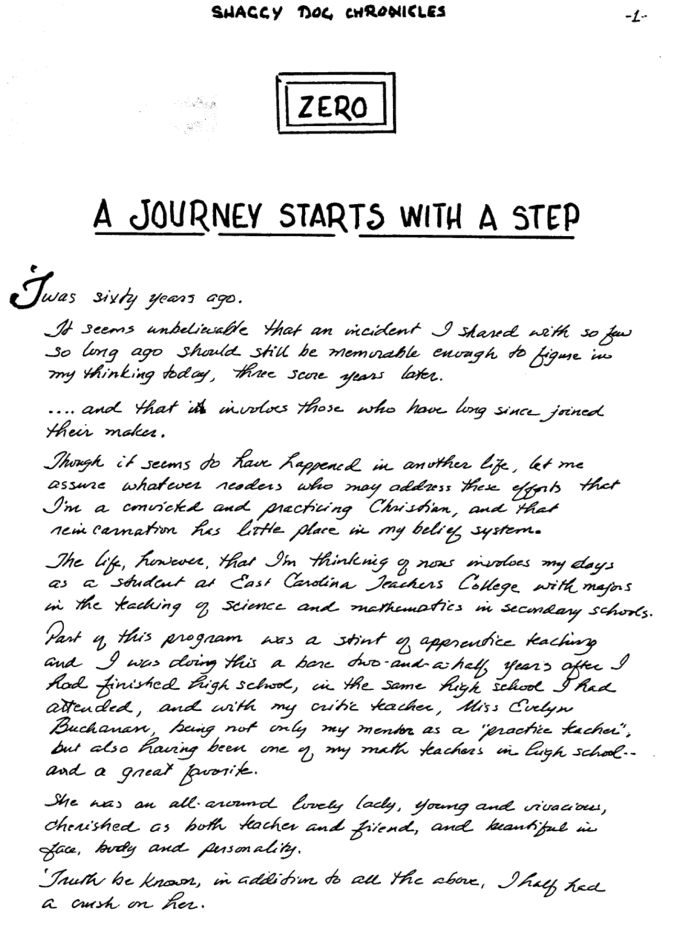 SHAGGY DOG CHRONICLES
-1-
ZERO
A JOURNEY STARTS WITH A STEP
'Twas sixty years ago.
It seems unbelievable that an incident I shared with so few
so long ago should still be memorable enough to figure in
my thinking today, three score years later.
.... and that it involves those who have long since joined
their maker.
Though it seems to have happened in another life, let me
assure whatever readers who may address these efforts that
I'm a convicted and practicing Christian, and that
reincarnation has little place in my belief system.
The life, however, that I'm thinking of now involves my days
as a student at East Carolina Teachers College with majors
in the teaching of science and mathematics in secondary schools.
Part of this program was a stint of apprentice teaching
and I was doing this a bare two-and-a-half years after I
had finished high school, in the same high school I had
attended, and with my critic teacher, Miss Evelyn
Buchanan, being not only my mentor as a "practice teacher",
but also having been one of my math teachers in high school--
and a great favorite.
She was an all-around lovely lady, young and vivacious,
cherished as both teacher and friend, and beautiful in
face, body and personality.
'Truth be known, in addition to all the above, I half had
a crush on her.